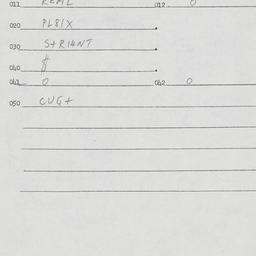 011 REAL 012 0
020 PL8IX
030 S+RI4NT
040 8
041 0 042 0
050 CUG+